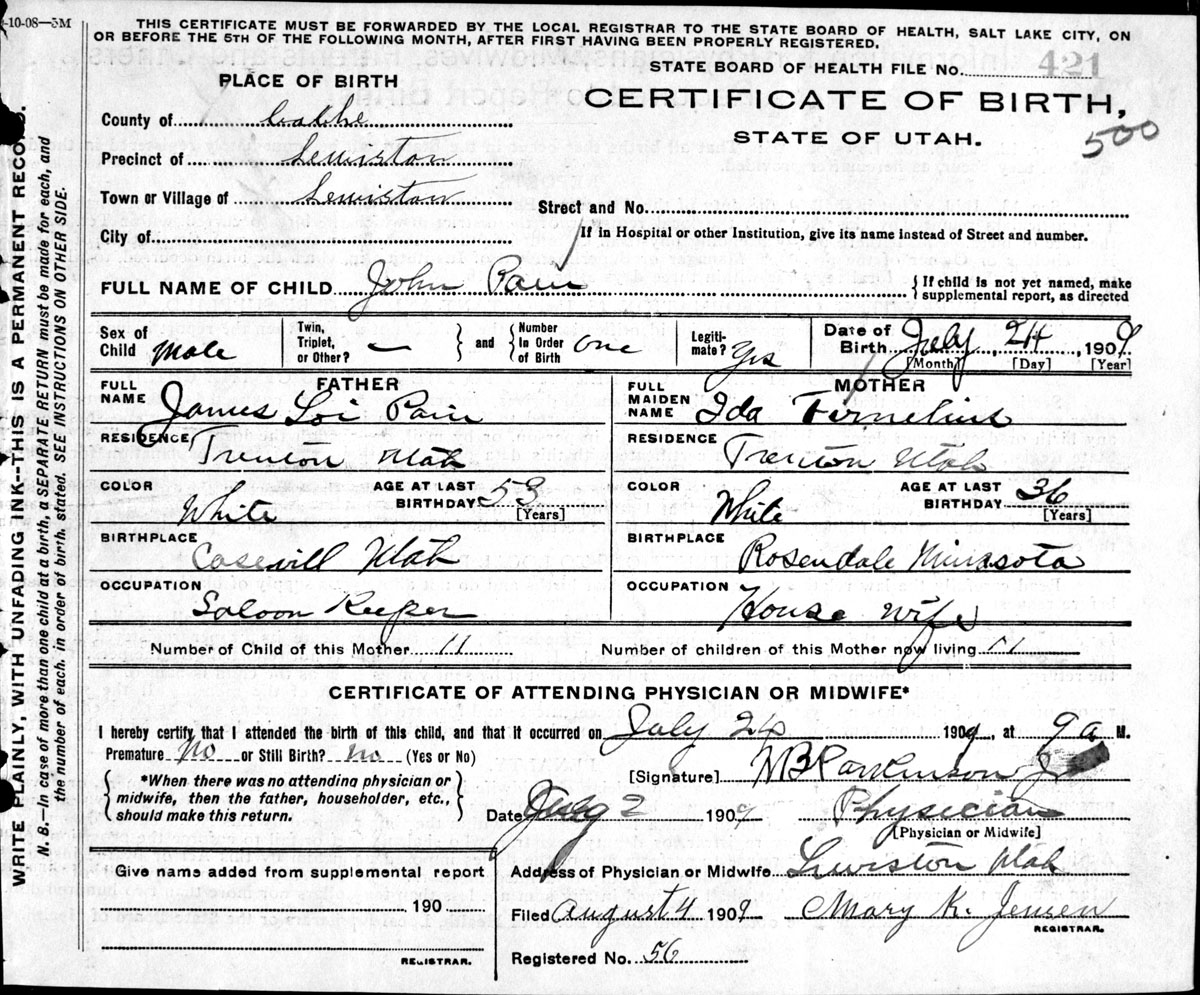 9-10-08—5M
THIS CERTIFICATE MUST BE FORWARDED BY THE LOCAL REGISTRAR TO THE STATE BOARD OF HEALTH, SALT LAKE CITY, ON
OR BEFORE THE 5TH OF THE FOLLOWING MONTH, AFTER FIRST HAVING BEEN PROPERLY REGISTERED.
STATE BOARD OF HEALTH FILE No. 421
CERTIFICATE OF BIRTH,
STATE OF UTAH.
500
PLACE OF BIRTH
County of Cache
Precinct of Lewiston
Town or Village of Lewiston
City of
Street and No.
If in Hospital or other Institution, give its name instead of Street and number.
FULL NAME OF CHILD John Pain
If child is not yet named, make
supplemental report, as directed
Sex of Child Male
Twin, Triplet, or Other? —
and
Number In Order of Birth one
Legitimate? Yes
Date of Birth July 24, 1909
[Month] [Day] [Year]
FATHER
FULL NAME James Loi Pain
RESIDENCE Trenton Utah
COLOR White
AGE AT LAST BIRTHDAY 53
[Years]
BIRTHPLACE Casevill Utah
OCCUPATION Saloon Keeper
MOTHER
FULL MAIDEN NAME Ida Fornelius
RESIDENCE Trenton Utah
COLOR White
AGE AT LAST BIRTHDAY 36
[Years]
BIRTHPLACE Rosendale Minnasota
OCCUPATION House wife
Number of Child of this Mother 11
Number of children of this Mother now living 11
CERTIFICATE OF ATTENDING PHYSICIAN OR MIDWIFE*
I hereby certify that I attended the birth of this child, and that it occurred on July 24 1909, at 9 a M.
Premature No or Still Birth? No (Yes or No)
*When there was no attending physician or
midwife, then the father, householder, etc.,
should make this return.
[Signature] W B Parkinson Jr
Date Aug 2 1909
Physician
[Physician or Midwife]
Address of Physician or Midwife Lewiston Utah
Filed August 4 1909
Mary K. Jensen
REGISTRAR.
Registered No. 56
Give name added from supplemental report
190
REGISTRAR.
WRITE PLAINLY, WITH UNFADING INK--THIS IS A PERMANENT RECORD.
N. B.—In case of more than one child at a birth, a SEPARATE RETURN must be made for each, and
the number of each, in order of birth, stated. SEE INSTRUCTIONS ON OTHER SIDE.